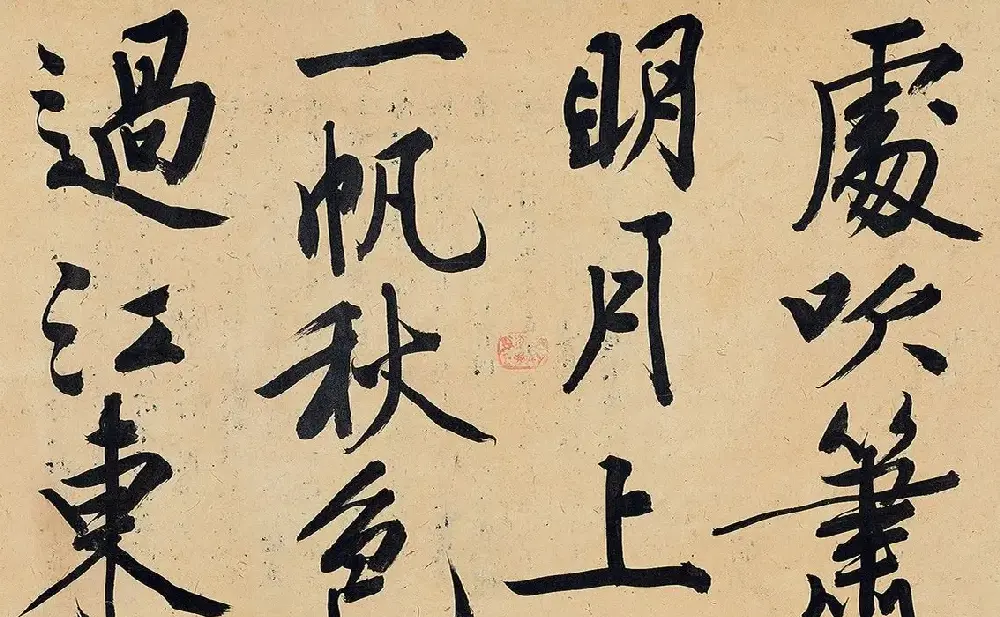 處吹簫
明月上
一帆秋色
過江東